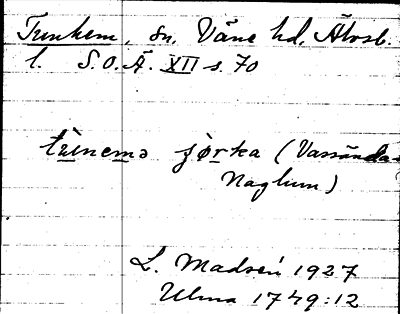 Trunhem, sn, Väne hd, Älvsb.
l. S.O.Ä. XII s. 70
trùnemə ʃørka (Vassända-
Naglum)
L. Madsén 1927
Ulma 1749:12